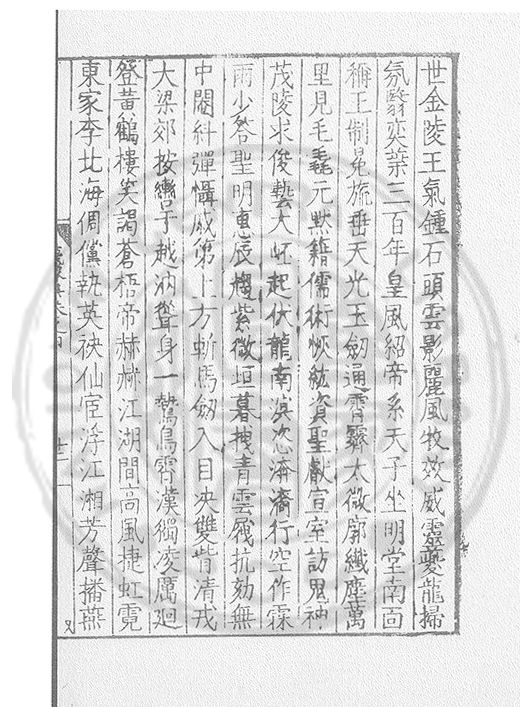 世金陵王氣鍾石頭雲影麗風牧茲威靈夔龍掃
氛翳奕葉三百年皇風紹帝系天子坐明堂南面
稱王制冕旒垂天光玉劒通霄霽太微廓纖塵萬
里見毛毳元黙籍儒術恢紘資聖獻宣室訪鬼神
茂陵求俊藝大屹起伏龍南滇恣海裔行空作霖
雨少答聖明惠辰趨紫微垣暮拽青雲履抗劾無
中閹糾彈懾戚第上方斬馬劒入目决雙眥清戎
大梁郊按轡于越汭聳身一鷙鳥霄漢獨凌厲廻
登黃鶴樓笑謁蒼梧帝赫赫江湖間高風捷虹霓
東家李北海倜儻執英袂仙宦浮江湘芳聲播燕